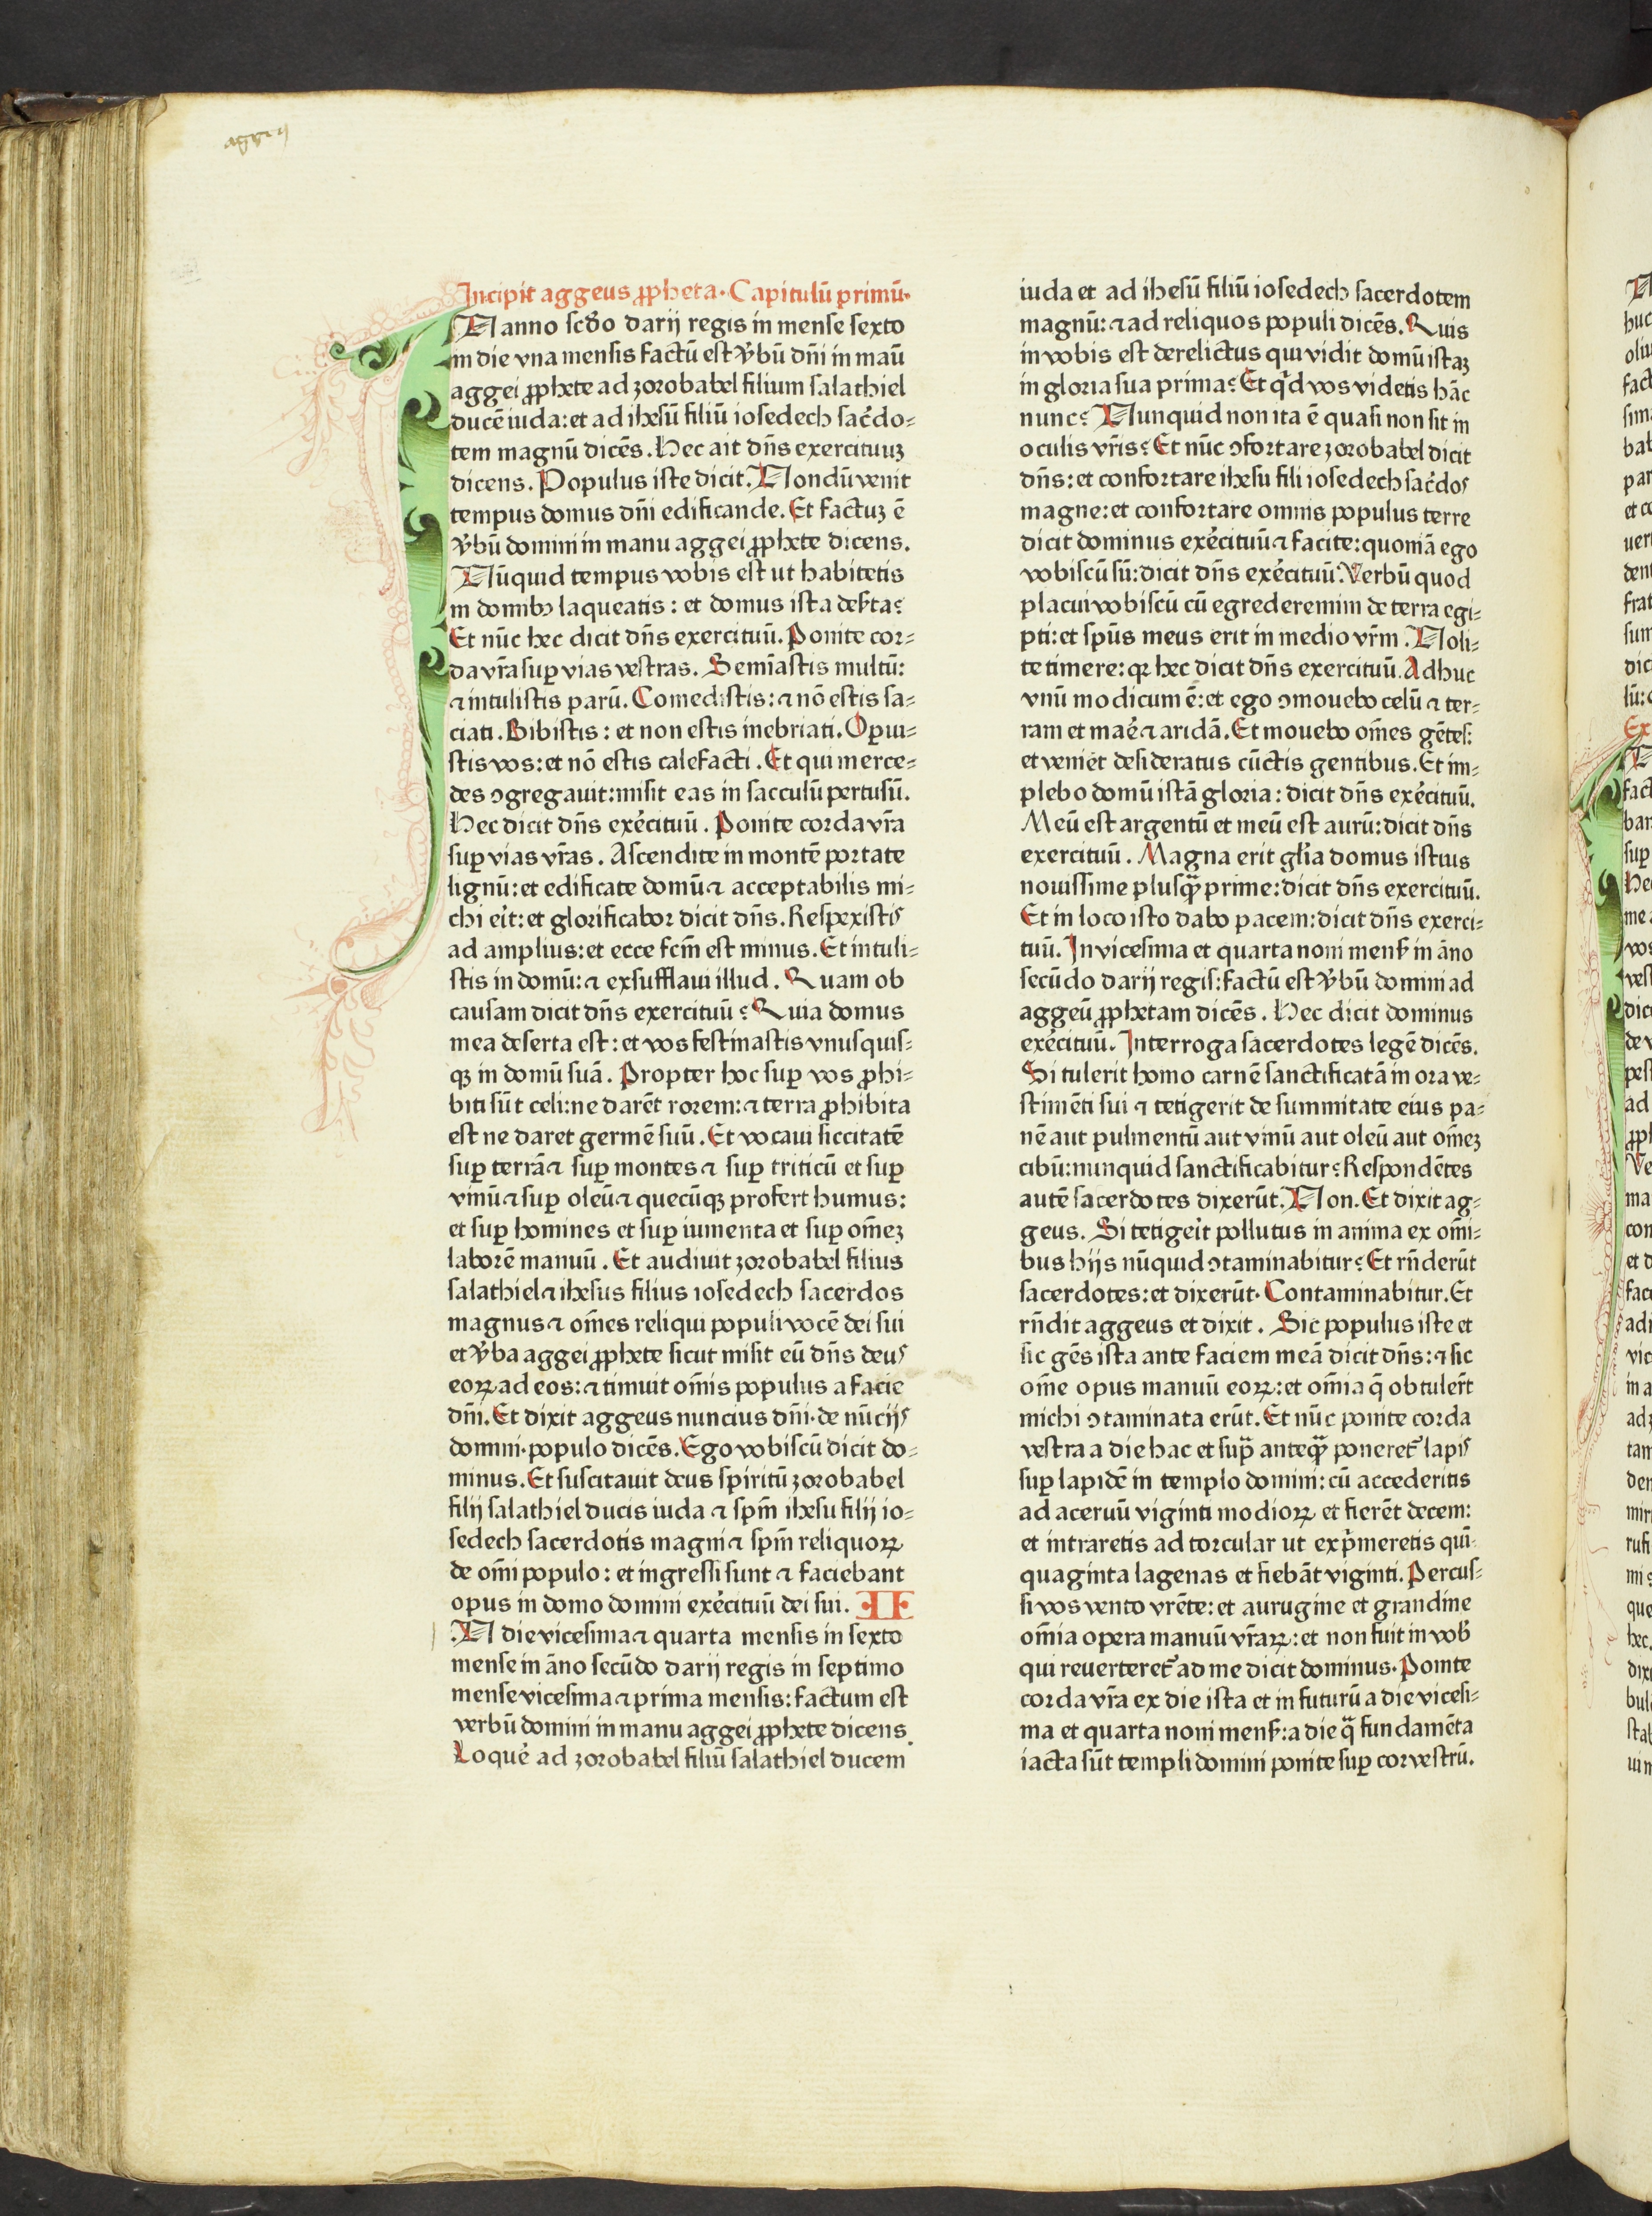 aggeus
Incipit aggeus ꝓpheta. Capitulū primū.
IN anno scďo darij regis in mense sexto
in die vna mensis factū est v̓bū dn̄i in manū
aggei ꝓphete ad zorobabel filium salathiel
ducē iuda: et ad ihesū filiū iosedech sac̓do⸗
tem magnū dicēs. Hec ait dn̄s exercituuꝫ
dicens. Populus iste dicit. Nondū venit
tempus domus dn̄i edificande. Et factuꝫ ē
v̓bū domini in manu aggei ꝓphete dicens.
Nūquid tempus vobis est ut habitetis
in domibꝰ laqueatis: et domus ista deẜta?
Et nūc hec dicit dn̄s exercituū. Ponite cor⸗
da vr̄a suꝑ vias vestras. Semīastis multū:
⁊ intulistis parū. Comedistis: ⁊ nō estis sa⸗
ciati. Bibistis: et non estis inebriati. Operui⸗
stis vos: et nō estis calefacti. Et qui merce⸗
des ↄgregauit: misit eas in sacculū pertusū.
Hec dicit dn̄s exe̓cituū. Ponite corda vr̄a
suꝑ vias vr̄as. Ascendite in montē portate
lignū: et edificate domū ⁊ acceptabilis mi⸗
chi eit̓: et glorificabor dicit dn̄s. Respexistis
ad amplius: et ecce fcm̄ est minus. Et intuli⸗
stis in domū: ⁊ exsufflaui illud. Quam ob
causam dicit dn̄s exercituū? Quia domus
mea deserta est: et vos festinastis vnusquis⸗
qꝫ in domū suā. Propter hoc suꝑ vos ꝓhi⸗
biti sūt celi: ne darēt rorem: ⁊ terra ꝓhibita
est ne daret germē suū. Et vocaui siccitatē
suꝑ terrā ⁊ suꝑ montes ⁊ suꝑ triticū et suꝑ
vinū ⁊ suꝑ oleū ⁊ quecūqꝫ profert humus:
et suꝑ homines et suꝑ iumenta et suꝑ om̄eꝫ
laborē manuū. Et audiuit zorobabel filius
salathiel ⁊ ihesus filius iosedech sacerdos
magnus ⁊ om̄es reliqui populi vocē dei sui
et v̓ba aggei ꝓphete sicut misit eū dn̄s deus
eoꝝ ad eos: ⁊ timuit om̄is populus a facie
dn̄i. Et dixit aggeus nuncius dn̄i. de nūcijs
domini. populo dicēs. Ego vobiscū dicit do⸗
minus. Et suscitauit deus spiritū zorobabel
filij salathiel ducis iuda ⁊ spm̄ ihesu filij io⸗
sedech sacerdotis magni ⁊ spm̄ reliquoꝝ
de om̄i populo: et ingressi sunt ⁊ faciebant
opus in domo domini exe̓cituū dei sui. II
IN die vicesima ⁊ quarta mensis in sexto
mense in āno secūdo darij regis in septimo
mense vicesima ⁊ prima mensis: factum est
verbū domini in manu aggei ꝓphete dicens.
Loque̓ ad zorobabel filiū salathiel ducem
iuda et ad ihesū filiū iosedech sacerdotem
magnū: ⁊ ad reliquos populi dicēs. Quis
in vobis est derelictus qui vidit domū istaꝫ
in gloria sua prima? Et qͥd vos videtis hāc
nunc? Nunquid non ita ē quasi non sit in
oculis vr̄is? Et nūc ↄfortare zorobabel dicit
dn̄s: et confortare ihesu fili iosedech sac̓dos
magne: et confortare omnis populus terre
dicit dominus exe̓cituū ⁊ facite: quoniā ego
vobiscū sū: dicit dn̄s exe̓cituū. Verbū quod
placui vobiscū cū egrederemini de terra egi⸗
pti: et spūs meus erit in medio vr̄m. Noli⸗
te timere: qꝛ hec dicit dn̄s exercituū. Adhuc
vnū modicum ē: et ego ↄmouebo celū ⁊ ter⸗
ram et mae̓ ⁊ aridā. Et mouebo om̄es gētes:
et veniet desideratus cūctis gentibus. Et im⸗
plebo domū istā gloria: dicit dn̄s exe̓cituū.
Meū est argentū et meū est aurū: dicit dn̄s
exercituū. Magna erit gl̄ia domus istius
nouissime plusqᷓꝫ prime: dicit dn̄s exercituū.
Et in loco isto dabo pacem: dicit dn̄s exerci⸗
tuū. In vicesima et quarta noni menẜ in āno
secūdo darij regis: factū est v̓bū domini ad
aggeū ꝓphetam dicēs. Hec dicit dominus
exe̓cituū. Interroga sacerdotes legē dicēs.
Si tulerit homo carnē sanctificatā in ora ve⸗
stimēti sui ⁊ tetigerit de summitate eius pa⸗
nē aut pulmentū aut vinū aut oleū aut om̄eꝫ
cibū: nunquid sanctificabitur? Respondētes
autē sacerdotes dixerūt. Non. Et dixit ag⸗
geus. Si tetigeit̓ pollutus in anima ex om̄i⸗
bus hijs nūquid ↄtaminabitur? Et rn̄derūt
sacerdotes: et dixerūt. Contaminabitur. Et
rn̄dit aggeus et dixit. Sic populus iste et
sic gēs ista ante faciem meā dicit dn̄s: ⁊ sic
om̄e opus manuū eoꝝ: et om̄ia q̄ obtuler̄t
michi ↄtaminata erūt. Et nūc ponite corda
vestra a die hac et supᷓ anteqᷓꝫ poneret᷑ lapis
suꝑ lapidē in templo domini: cū accederitis
ad aceruū viginti modioꝝ et fierēt decem:
et intraretis ad torcular ut expͥmeretis quī⸗
quaginta lagenas et fiebāt viginti. Percus⸗
si vos vento vrēte: et aurugine et grandine
om̄ia opera manuū vr̄aꝝ: et non fuit in vob̓
qui reuerteret᷑ ad me dicit dominus. Ponite
corda vr̄a ex die ista et in futurū a die vicesi⸗
ma et quarta noni menẜ: a die qᷓ fundamēta
iacta sūt templi domini ponite suꝑ cor vestrū.